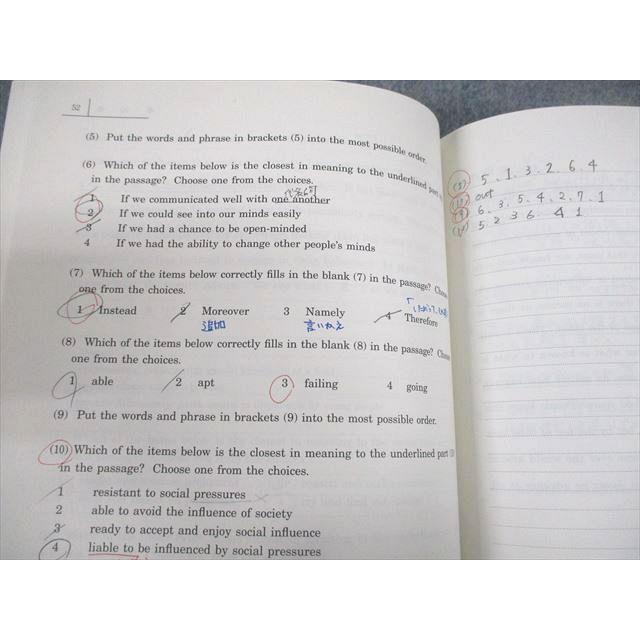 52
(5) Put the words and phrase in brackets (5) into the most possible order.
(6) Which of the items below is the closest in meaning to the underlined part
in the passage? Choose one from the choices.
1 If we communicated well with one another
2 If we could see into our minds easily
3 If we had a chance to be open-minded
4 If we had the ability to change other people's minds
(7) Which of the items below correctly fills in the blank (7) in the passage?
one from the choices.
1 Instead 2 Moreover 3 Namely 4 Therefore
追加 言いかえ
(8) Which of the items below correctly fills in the blank (8) in the passage?
one from the choices.
1 able 2 apt 3 failing 4 going
(9) Put the words and phrase in brackets (9) into the most possible order.
(10) Which of the items below is the closest in meaning to the underlined part
in the passage? Choose one from the choices.
1 resistant to social pressures
2 able to avoid the influence of society
3 ready to accept and enjoy social influence
4 liable to be influenced by social pressures
5. 1. 3. 2. 6. 4
out
6. 3. 5. 4. 2. 7. 1
5. 2 3 6 4 1